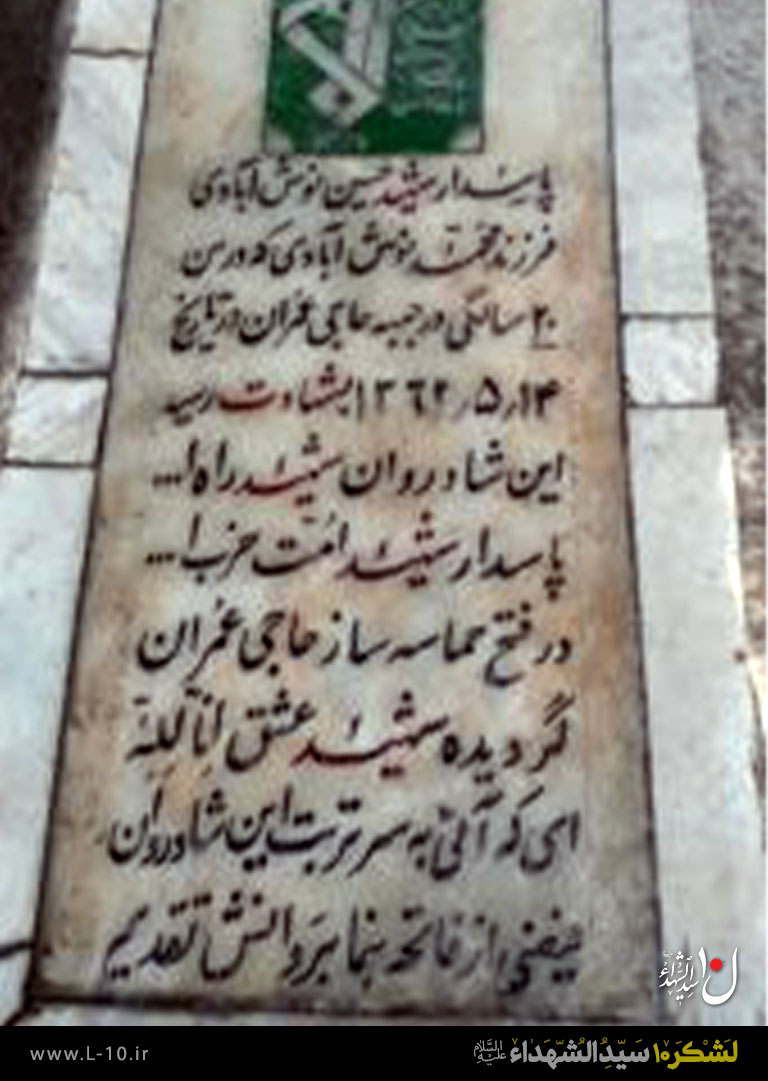 پاسدار شهید حسین نوش آبادی
فرزند محمّد نوش آبادی که در سن
۲۰ سالگی در جبهه حاجی عمران در تاریخ
۱۳۶۲٫۵٫۱۴ بشهادت رسید
این شاد روان شهید راه ا...
پاسدار شهید امّت حزب ا...
در فتح حماسه ساز حاجی عمران
گردیده شهید عشق اناللّه
ای که آئی به سر تربت این شاد روان
فیضی از فاتحه بنما بروانش تقدیم
ل۱۰ سیدالشهداء
www.L-10.ir
لشکر۱۰ سیّدُالشّهداء علیه السلام